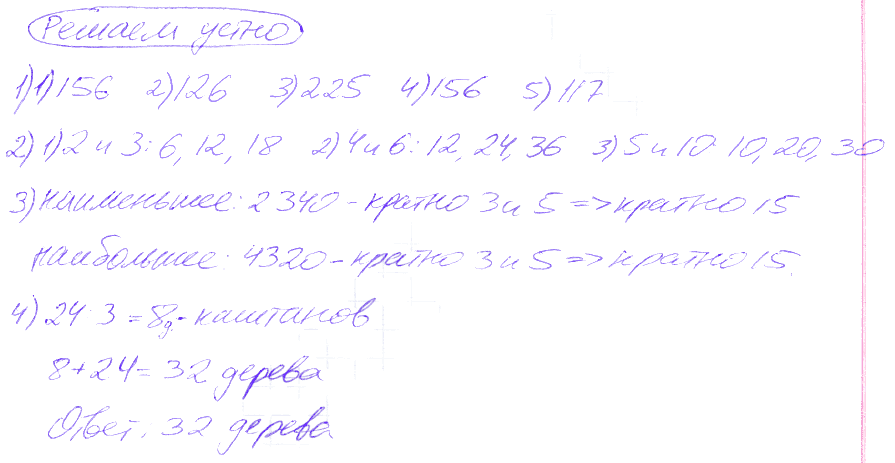 Решаем устно
1) 1) 156 2) 126 3) 225 4) 156 5) 117
2) 1) 2 и 3: 6, 12, 18 2) 4 и 6: 12, 24, 36 3) 5 и 10: 10, 20, 30
3) наименьшее: 2340 - кратно 3 и 5 => кратно 15
наибольшее: 4320 - кратно 3 и 5 => кратно 15.
4) 24 : 3 = 8 д. - каштанов
8 + 24 = 32 дерева
Ответ. 32 дерева